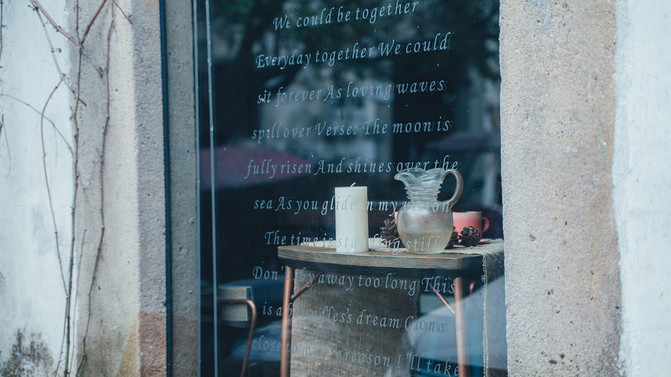 We could be together
Everyday together We could
sit forever As loving waves
spill over Verse: The moon is
fully risen And shines over the
sea As you glide in my
The time is still
Don't by away too long This
is a dream Come
close to reason I'll take